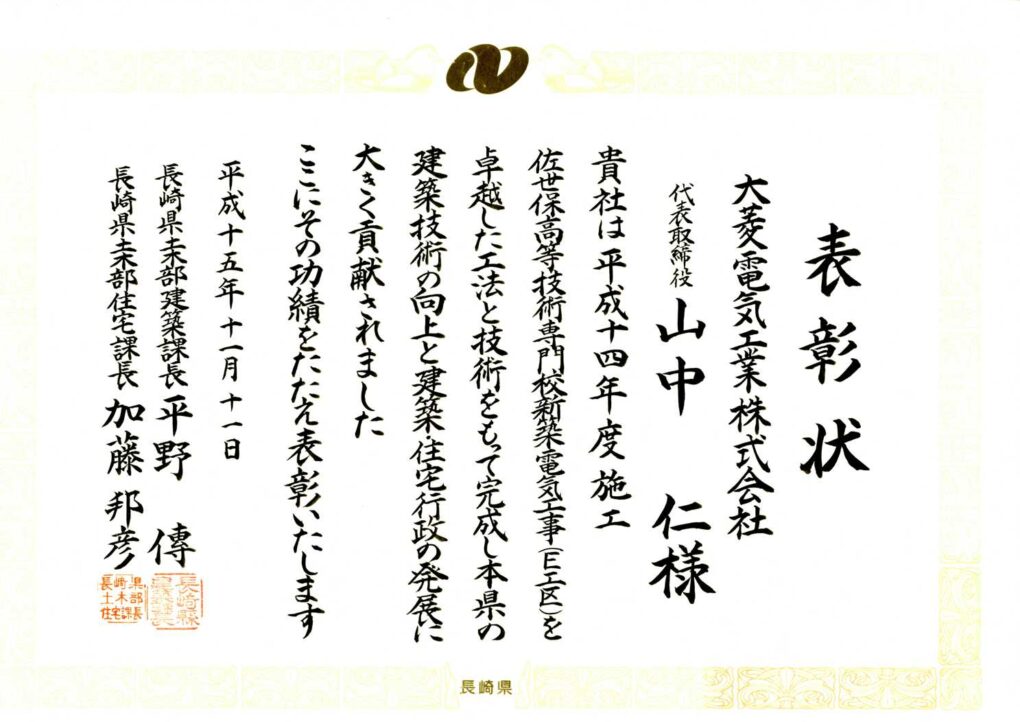 表彰状
大菱電気工業株式会社
代表取締役 山中 仁様
貴社は平成十四年度施工
佐世保高等技術専門校新築電気工事(E工区)を
卓越した工法と技術をもって完成し本県の
建築技術の向上と建築・住宅行政の発展に
大きく貢献されました
ここにその功績をたたえ表彰いたします
平成十五年十一月十一日
長崎県土木部建築課長 平野 傳
長崎県土木部住宅課長 加藤邦彦
長崎県
土木部
住宅課長
長崎県